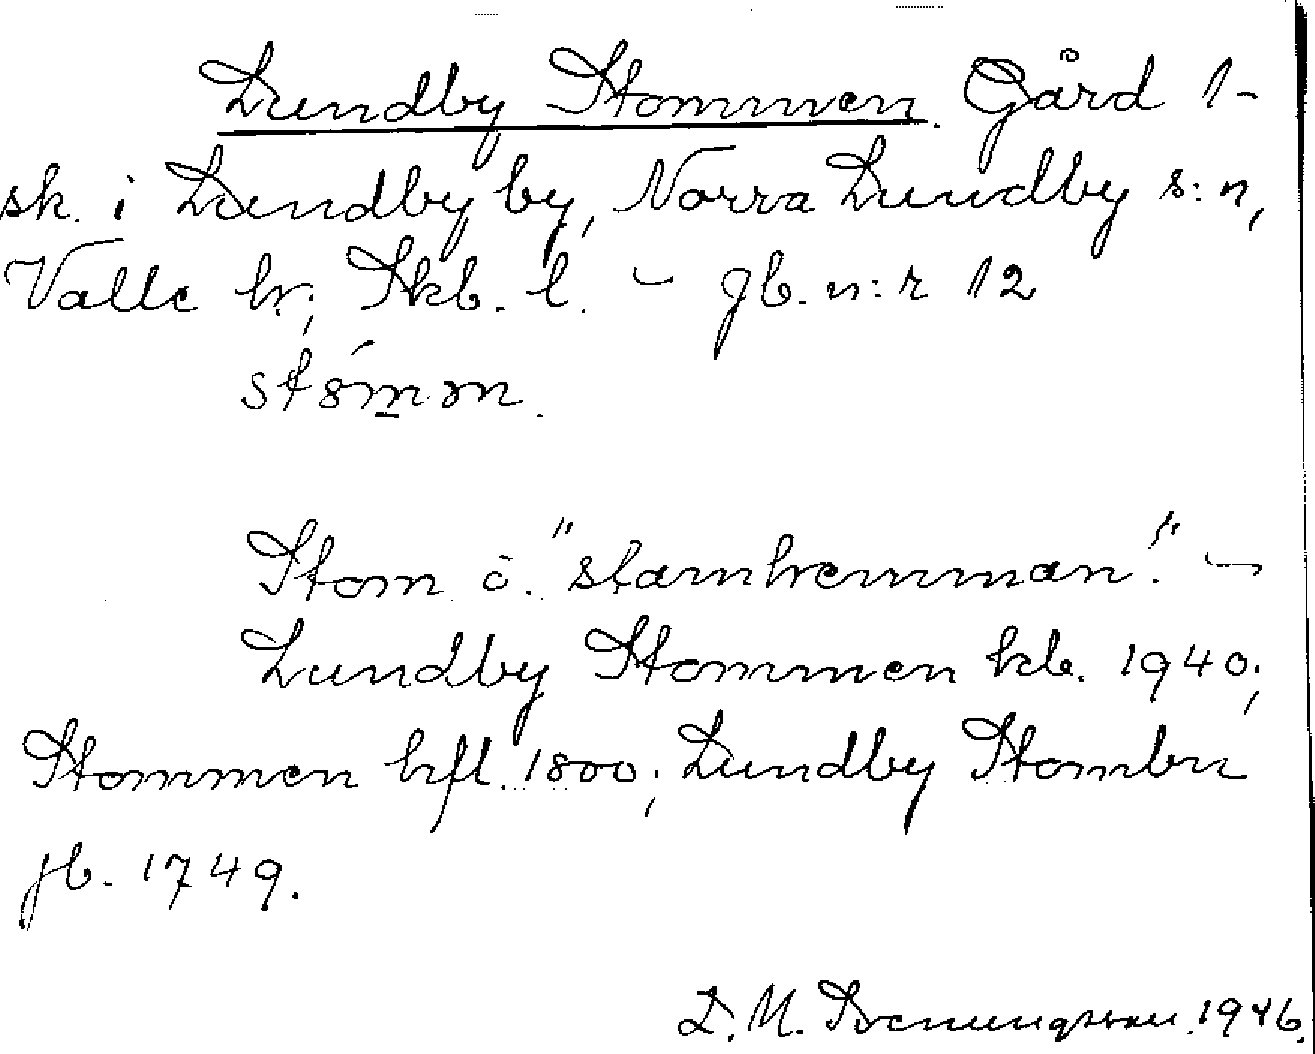 Lundby Stommen. Gård 1-
sk. i Lundby by, Norra Lundby s:n,
Valle hr; Skb. l. – jb. n:r 12
Stom ö. "stamhemman". –
Lundby Stommen kb. 1940;
Stommen hfl. 1800; Lundby Stombn
jb. 1749.
D. M. 1946.